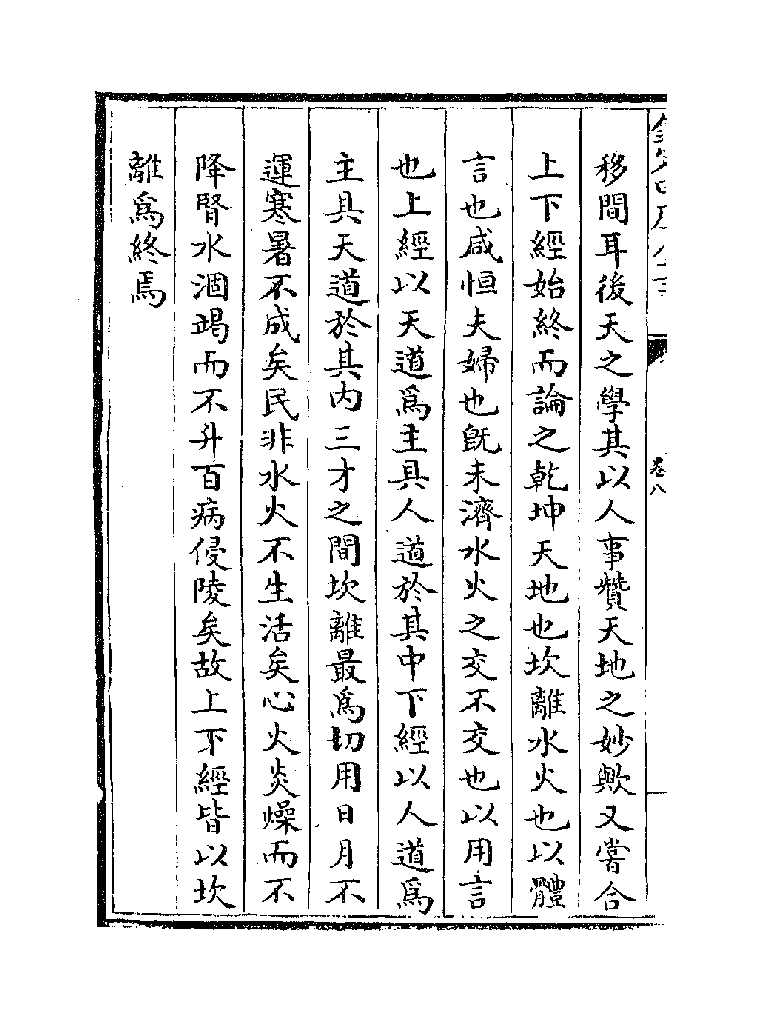 移間耳後天之學其以人事贊天地之妙歟又嘗合
上下經始終而論之乾坤天地也坎離水火也以體
言也咸恒夫婦也旣未濟水火之交不交也以用言
也上經以天道爲主具人道於其中下經以人道爲
主具天道於其内三才之間坎離最爲切用日月不
運寒暑不成矣民非水火不生活矣心火炎燥而不
降腎水涸竭而不升百病侵陵矣故上下經皆以坎
離爲終焉
卷八